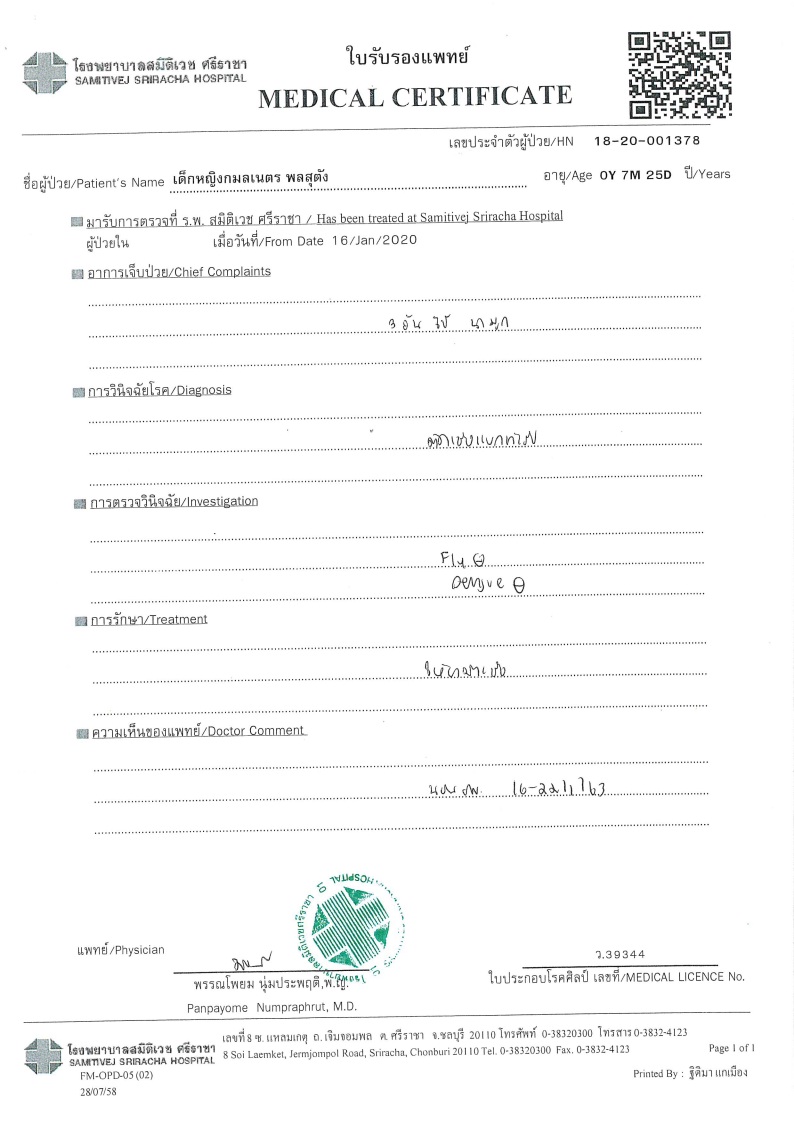 โรงพยาบาลสมิติเวช ศรีราชา
SAMITIVEJ SRIRACHA HOSPITAL
ใบรับรองแพทย์
MEDICAL CERTIFICATE
เลขประจำตัวผู้ป่วย/HN 18-20-001378
ชื่อผู้ป่วย/Patient's Name เด็กหญิงกมลเนตร พลสุตัง อายุ/Age 0Y 7M 25D ปี/Years
มารับการตรวจที่ ร.พ. สมิติเวช ศรีราชา / Has been treated at Samitivej Sriracha Hospital
ผู้ป่วยใน เมื่อวันที่/From Date 16/Jan/2020
อาการเจ็บป่วย/Chief Complaints
3 วัน ไข้ น้ำมูก
การวินิจฉัยโรค/Diagnosis
การตรวจวินิจฉัย/Investigation
Flu ⊖
Dengue ⊖
การรักษา/Treatment
ความเห็นของแพทย์/Doctor Comment
นอน รพ. 16-22/1/63
แพทย์/Physician
พรรณโพยม นุ่มประพฤติ,พ.ญ.
Panpayome Numpraphrut, M.D.
ว.39344
ใบประกอบโรคศิลป์ เลขที่/MEDICAL LICENCE No.
โรงพยาบาลสมิติเวช ศรีราชา
SAMITIVEJ SRIRACHA HOSPITAL
เลขที่ 8 ซ. แหลมเกตุ ถ. เจิมจอมพล ต. ศรีราชา จ.ชลบุรี 20110 โทรศัพท์ 0-38320300 โทรสาร 0-3832-4123
8 Soi Laemket, Jermjompol Road, Sriracha, Chonburi 20110 Tel. 0-38320300 Fax. 0-3832-4123
Page 1 of 1
FM-OPD-05 (02)
28/07/58
Printed By : ฐิติมา แกเมือง